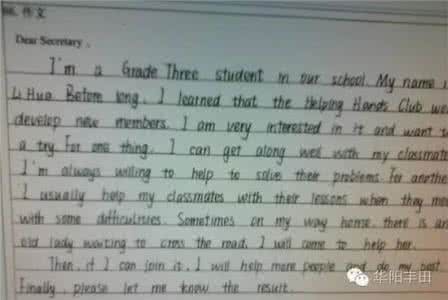 作文
Dear Secretary,
I'm a Grade Three student in our school. My name i
Li Hua. Before long, I learned that the Helping Hands Club wo
develop new members. I am very interested in it and want
a try. For one thing, I can get along well with my classmate
I'm always willing to help to solve their problems. For anothe
I usually help my classmates with their lessons when they me
with some difficulties. Sometimes on my way home, there is an
old lady waiting to cross the road, I will come to help her.
Then, if I can join it, I will help more people and do my best.
Finally, please let me know the result.
华阳丰田